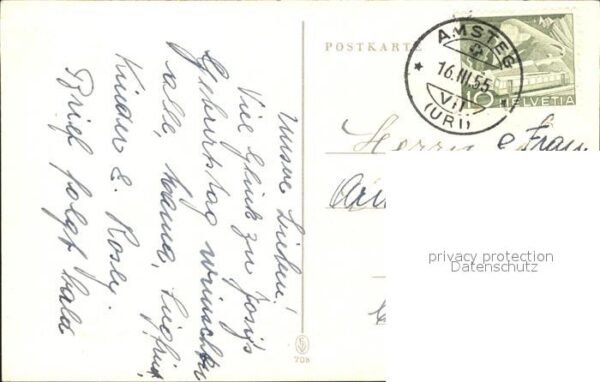 Unsere Lieben!
Viel Glück zu Josy's
Geburtstag wünschen
alle, Mama, Sigfried
Kinder & Rosly.
Brief folgt bald
POSTKARTE
AMSTEG
16.III.55
VII
(URI)
10 HELVETIA
Herrn & Frau
708
privacy protection
Datenschutz